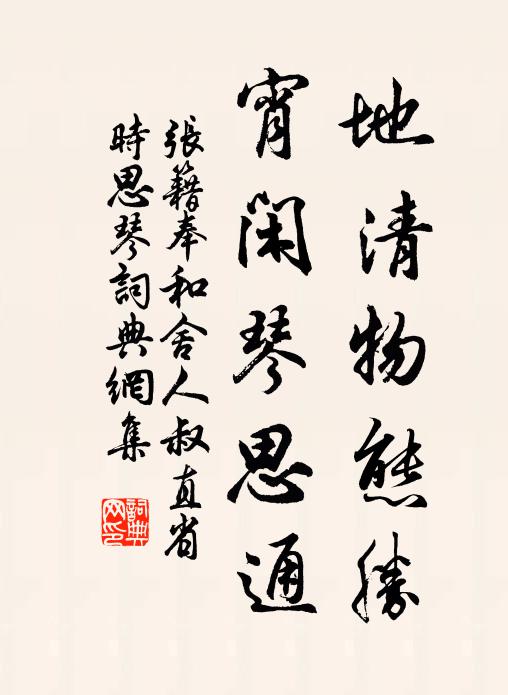 地清物態勝
宵閑琴思通
張籍奉和舍人叔直省
時思琴詞典網集
詞典网印